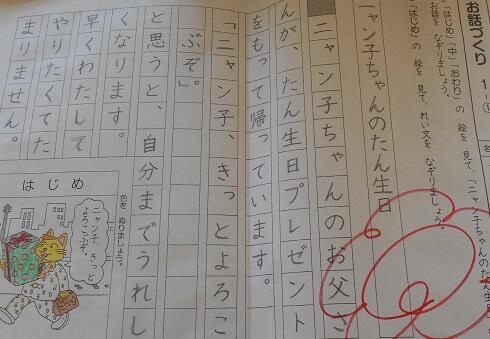 お話づくり 1-①
「はじめ」「中」「おわり」の 絵を 見て、「ニャン子ちゃんのたん生日」の
お話を なぞりましょう。
「はじめ」の 絵を 見て、れい文を なぞりましょう。
ニャン子ちゃんのたん生日
ニャン子ちゃんのお父さ
んが、たん生日プレゼント
をもって帰っています。
「ニャン子、きっとよろこ
ぶぞ。」
と思うと、自分までうれし
くなります。
早くわたして
やりたくてた
まりません。
色を ぬりましょう。
はじめ
ニャン子、きっと
よろこぶぞ。